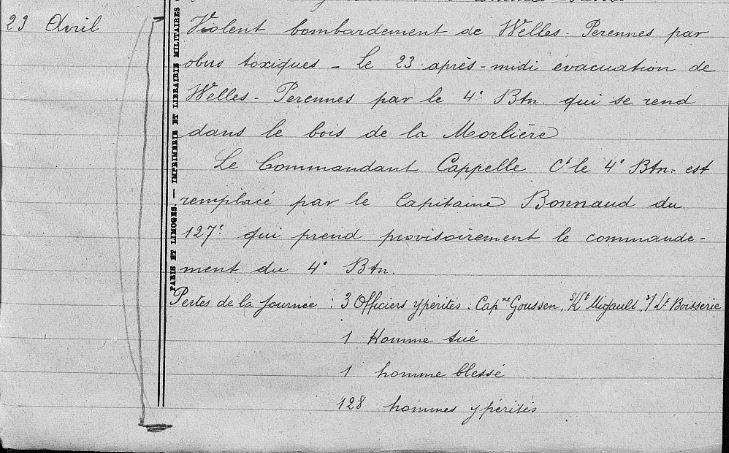 23 Avril
Violent bombardement de Welles-Perennes par
obus toxiques - Le 23 après-midi évacuation de
Welles-Perennes par le 4e Btn qui se rend
dans le bois de la Morlière
Le Commandant Cappelle Ct le 4e Btn. est
remplacé par le Capitaine Bonnaud du
127e qui prend provisoirement le commande-
ment du 4e Btn.
Pertes de la journée : 3 Officiers ypérites : Capne Goussen, S/Lt Migault, S/Lt Boisserie
1 Homme tué
1 homme blessé
128 hommes ypérités
PARIS ET LIMOGES. — IMPRIMERIE ET LIBRAIRIE MILITAIRES